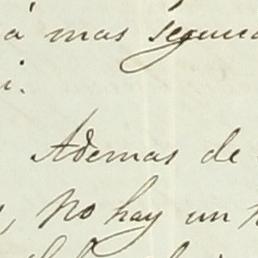 á mas segu
i.
Ademas de
, No hay un